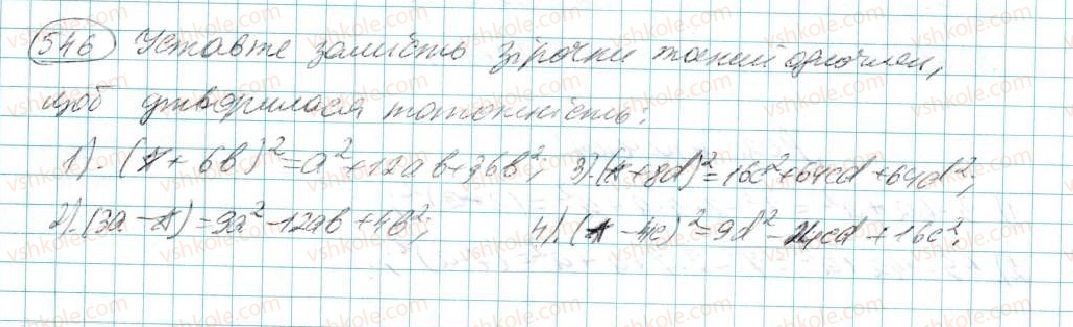 546 Уставте замість зірочки такий одночлен,
щоб утворилася тотожність:
1). (* + 6b)² = a² + 12ab + 36b²; 3). (* + 8d)² = 16c² + 64cd + 64d²;
2). (3a - *) = 9a² - 12ab + 4b²; 4). (* - 4c)² = 9d² - 24cd + 16c².